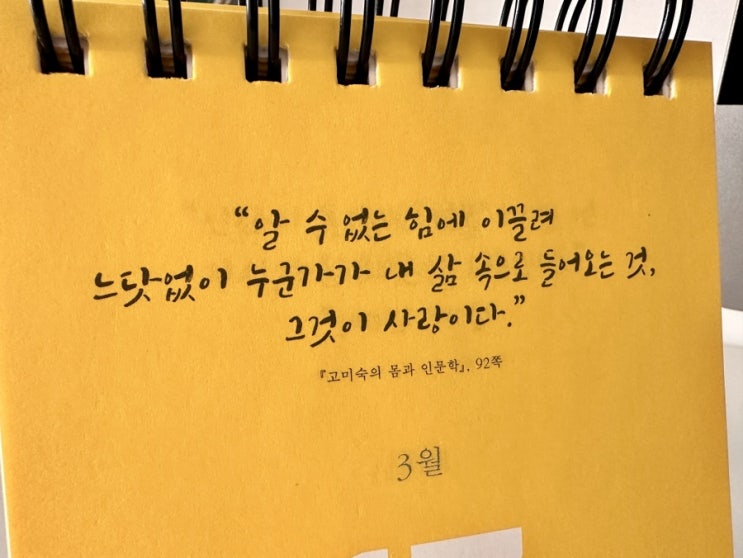 “알 수 없는 힘에 이끌려
느닷없이 누군가가 내 삶 속으로 들어오는 것,
그것이 사랑이다.”
『고미숙의 몸과 인문학』, 92쪽
3월